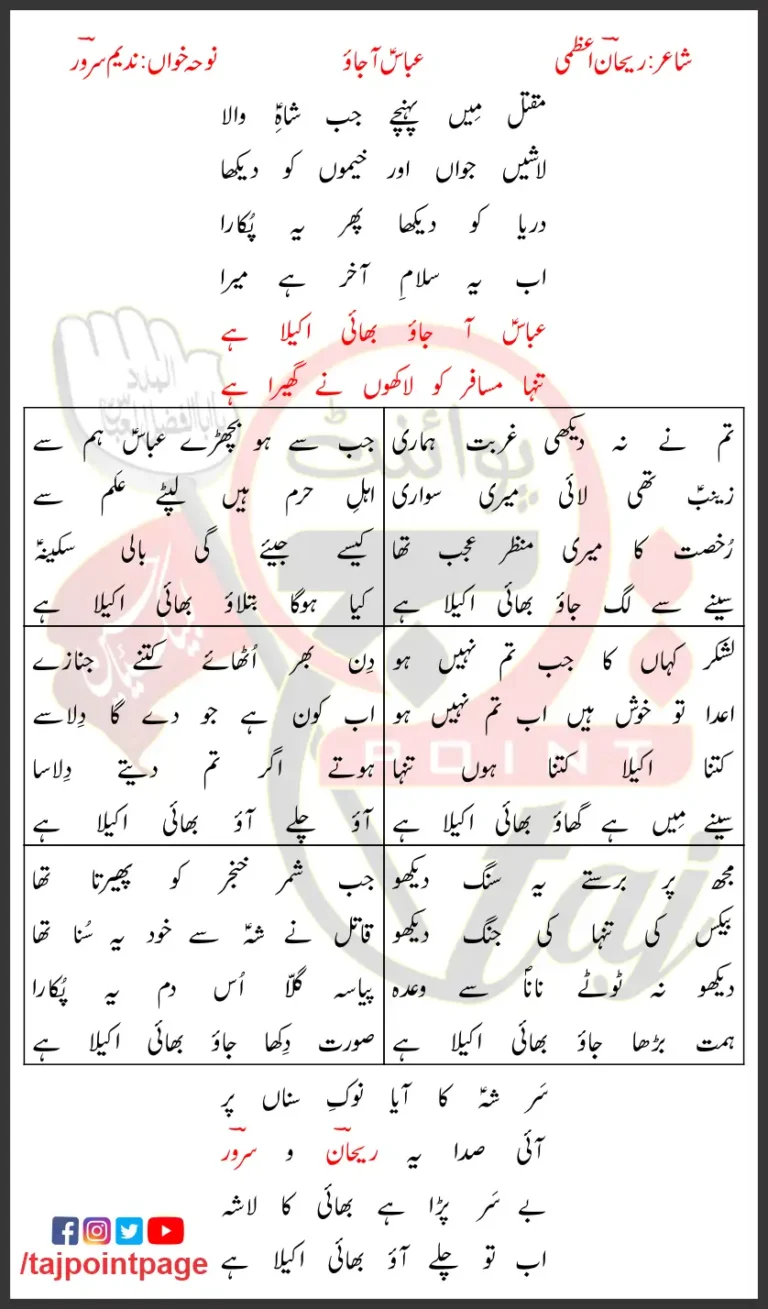 شاعر: ریحانؔ اعظمی
عباسؑ آ جاؤ
نوحہ خواں: ندیم سرورؔ
مقتل مِیں پہنچے جب شاہِؑ والا
لاشیں جواں اور خیموں کو دیکھا
دریا کو دیکھا پھر یہ پُکارا
اب یہ سلامِ آخر ہے میرا
عباسؑ آ جاؤ بھائی اکیلا ہے
تنہا مسافر کو لاکھوں نے گھیرا ہے
تم نے نہ دیکھی غربت ہماری
زینبؑ تھی لائی میری سواری
رُخصت کا میری منظر عجب تھا
سینے سے لگ جاؤ بھائی اکیلا ہے
جب سے ہو بچھڑے عباسؑ ہم سے
اہلِ حرم ہیں لپٹے عَلم سے
کیسے جیئے گی بالی سکینہؑ
کیا ہوگا بتلاؤ بھائی اکیلا ہے
لشکر کہاں کا جب تم نہیں ہو
اعدا تو خوش ہیں اب تم نہیں ہو
کتنا اکیلا کتنا ہوں تنہا
سینے مِیں ہے گھاؤ بھائی اکیلا ہے
دِن بھر اُٹھائے کتنے جنازے
اب کون ہے جو دے گا دِلاسے
ہوتے اگر تم دیتے دِلاسا
آؤ چلے آؤ بھائی اکیلا ہے
مجھ پر برستے یہ سنگ دیکھو
بیکس کی تنہا کی جنگ دیکھو
دیکھو نہ ٹوٹے ناناؐ سے وعدہ
ہمت بڑھا جاؤ بھائی اکیلا ہے
جب شمر خنجر کو پھیرتا تھا
قاتل نے شہؑ سے خود یہ سُنا تھا
پیاسہ گلاّ اُس دم یہ پُکارا
صورت دِکھا جاؤ بھائی اکیلا ہے
سَر شہؑ کا آیا نوکِ سناں پر
آئی صدا یہ ریحانؔ و سرورؔ
بے سَر پڑا ہے بھائی کا لاشہ
اب تو چلے آؤ بھائی اکیلا ہے
پوائنٹ
POINT
taj
/tajpointpage